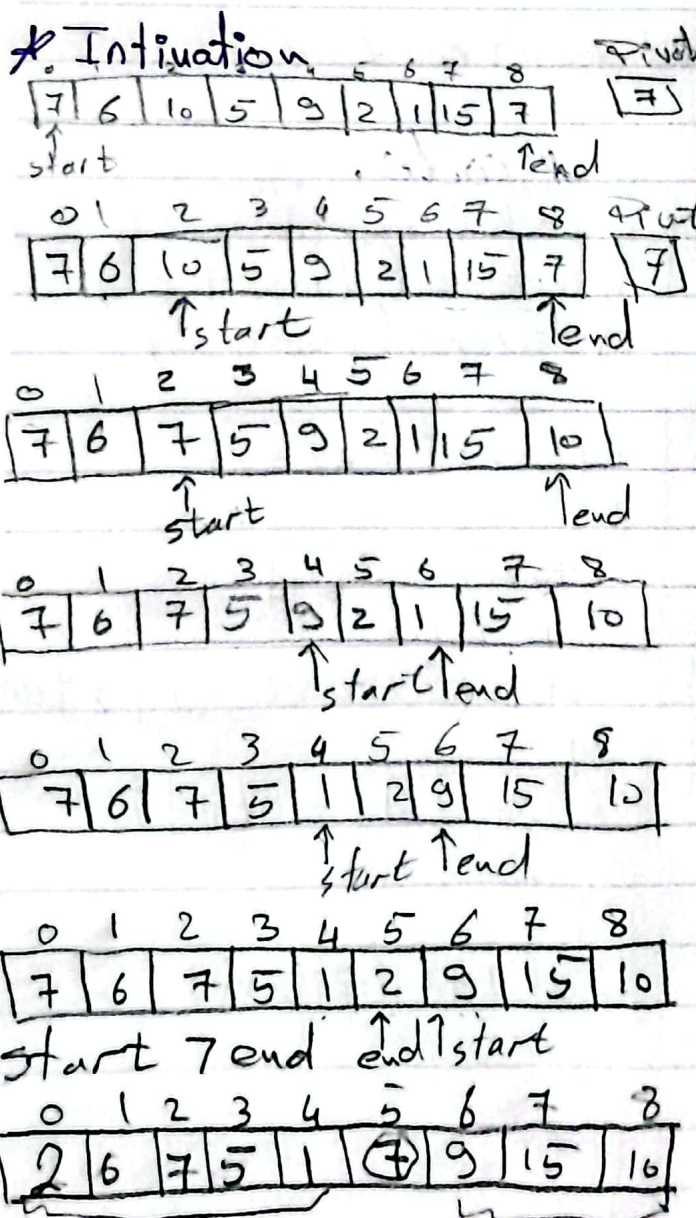 * Intiuation
0 5 6 7 8 Pivot
7 6 10 5 9 2 1 15 7 7
start end
0 1 2 3 4 5 6 7 8 Pivot
7 6 10 5 9 2 1 15 7 7
start end
0 1 2 3 4 5 6 7 8
7 6 7 5 9 2 1 15 10
start end
0 1 2 3 4 5 6 7 8
7 6 7 5 9 2 1 15 10
start end
0 1 2 3 4 5 6 7 8
7 6 7 5 1 2 9 15 10
start end
0 1 2 3 4 5 6 7 8
7 6 7 5 1 2 9 15 10
start 7 end end start
0 1 2 3 4 5 6 7 8
2 6 7 5 1 7 9 15 10